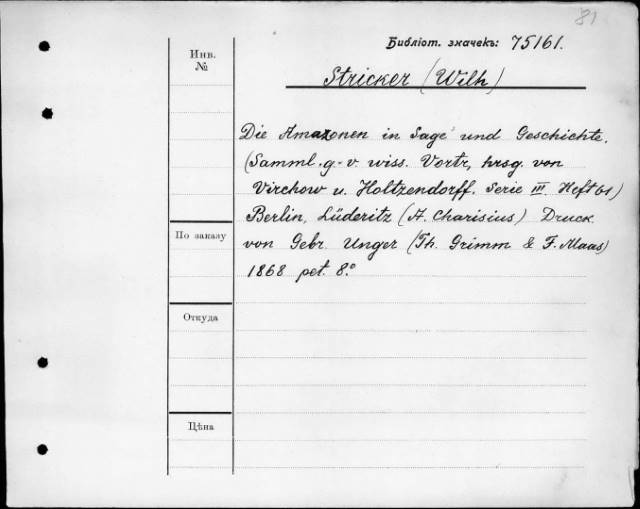 81
Библіот. значекъ: 75161.
Инв.
№
Stricker (Wilh)
Die Amazonen in Sage und Geschichte.
(Samml. g.-v. wiss. Vortr, hrsg. von
Virchow u. Holtzendorff. Serie III. Heft 61)
Berlin, Lüderitz (A. Charisius) Druck
По заказу
von Gebr. Unger (Th. Grimm & F. Maas)
1868 pet. 8.°
Откуда
Цѣна